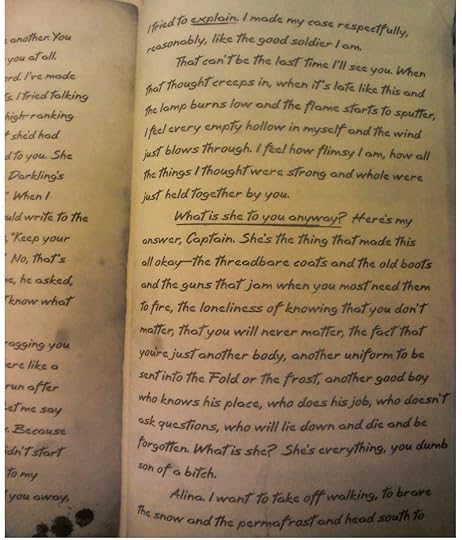 another. You
you at all.
I've made
I tried talking
high-ranking
she'd had
to you. She
Darkling's
" When I
write to the
"Keep your
No, that's
he asked,
know what
you
like a
run after
me say
Because
didn't start
to my
you away,
I tried to explain. I made my case respectfully,
reasonably, like the good soldier I am.
That can't be the last time I'll see you. When
that thought creeps in, when it's late like this and
the lamp burns low and the flame starts to sputter,
I feel every empty hollow in myself and the wind
just blows through. I feel how flimsy I am, how all
the things I thought were strong and whole were
just held together by you.
What is she to you anyway? Here's my
answer, Captain. She's the thing that made this
all okay—the threadbare coats and the old boots
and the guns that jam when you most need them
to fire, the loneliness of knowing that you don't
matter, that you will never matter, the fact that
you're just another body, another uniform to be
sent into the Fold or the frost, another good boy
who knows his place, who does his job, who doesn't
ask questions, who will lie down and die and be
forgotten. What is she? She's everything, you dumb
son of a bitch.
Alina. I want to take off walking, to brave
the snow and the permafrost and head south to